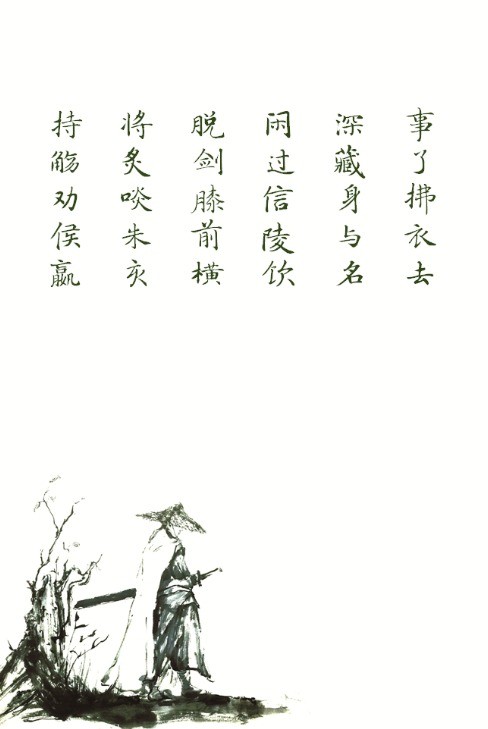 事了拂衣去
深藏身与名
闲过信陵饮
脱剑膝前横
将炙啖朱亥
持觞劝侯嬴